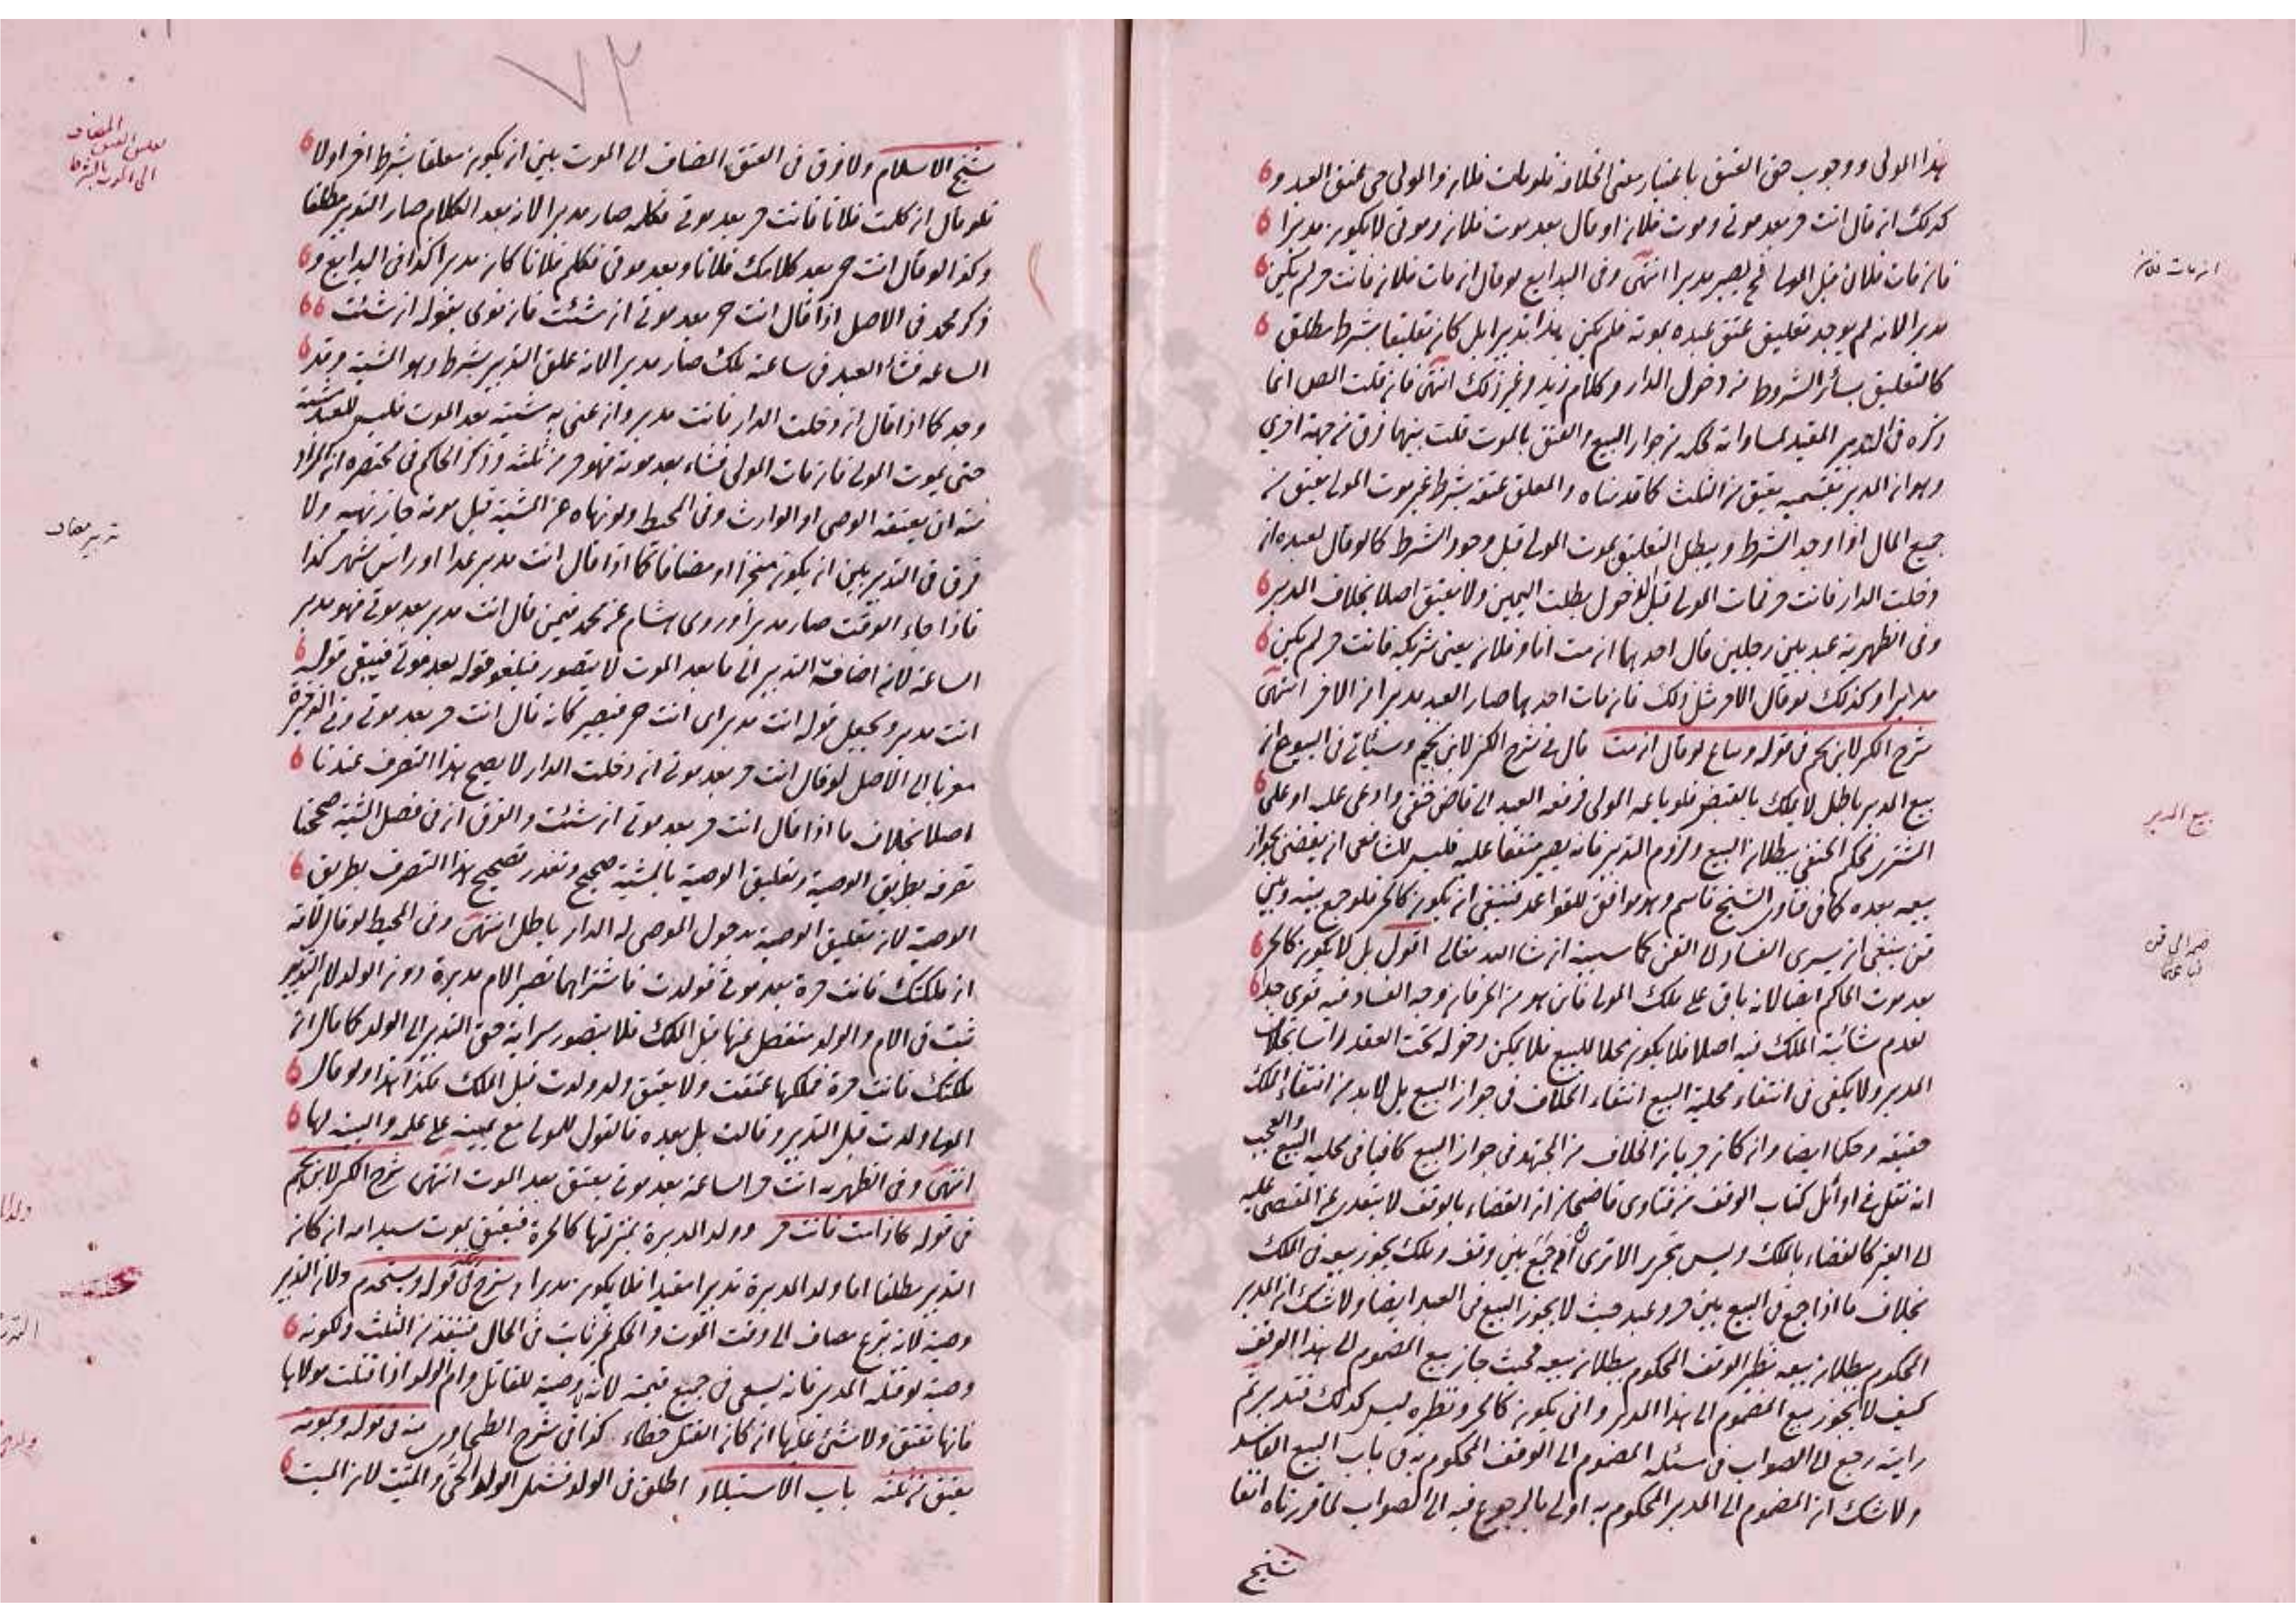 هذا المولى ووجوب حق العتق باعتبار معنى الخلافة فلو مات فلان والمولى حى عتق العبد و
كذلك ان قال انت حر بعد موتى وموت فلان او قال بعد موت فلان وموتى لا يكون مدبرا
فان مات فلان قبل المولى فح يصير مدبرا انتهى وفى البدايع لو قال ان مات فلان فانت حر لم يكن
مدبرا لانه لم يوجد تعليق عتق عبده بموته فلم يكن هذا تدبيرا بل كان تعليقا بشرط مطلق
كالتعليق بسائر الشروط من دخول الدار وكلام زيد وغير ذلك انتهى فان قلت المص انما
ذكره فى التدبير المقيد لمساواته لحكمه من جواز البيع والعتق بالموت قلت بينهما فرق من جهة اخرى
وهو ان المدبر بقسميه يعتق من الثلث كما قدمناه والمعلق عتقه بشرط غير موت المولى يعتق من
جميع المال اذا وجد الشرط ويبطل التعليق بموت المولى قبل وجود الشرط كما لو قال لعبده ان
دخلت الدار فانت حر فمات المولى قبل الدخول بطلت اليمين ولا يعتق اصلا بخلاف المدبر
وفى الظهيرية عبد بين رجلين قال احدهما ان مت انا وفلان يعنى شريكه فانت حر لم يكن
مدبرا وكذلك لو قال الاخر مثل ذلك فان مات احدهما صار العبد مدبرا من الاخر انتهى
شرح الكنز لابن نجم فى قوله ويباع لو قال ان مت قال فى شرح الكنز لابن نجيم وسيأتى فى البيوع ان
بيع المدبر باطل لا يملك بالقبض فلو باعه المولى فرفعه العبد الى قاض حنفى وادعى عليه او على
المشترى فحكم الحنفى ببطلان البيع ولزوم التدبير فانه يصير متفقا عليه فليس للشافعى ان يقضى بجواز
بيعه بعده كما فى فتاوى الشيخ قاسم وهو موافق للقواعد فينبغى ان يكون كالحر فلو جمع بينه وبين
قن ينبغى ان يسرى الفساد الى القن كما سنبينه ان شا الله تعالى اقول بل لا يكون كالحر
بعد موت الحاكم ايضا لانه باق على ملك المولى فاين هو من الحر فان وجه الفساد فيه قوى جدا
لعدم شائبة الملك فيه اصلا فلا يكون محلا للبيع فلا يمكن دخوله تحت العقد راسا بخلاف
المدبر ولا يكفى فى انتفاء محلية البيع انتفاء الخلاف فى جواز البيع بل لابد من انتفاء الملك
حقيقة وحكما ايضا وان كان جريان الخلاف من المجتهد فى جواز البيع كافيا فى محلية البيع والعجب
انه نقل فى اوائل كتاب الوقف من فتاوى قاضيخان ان القضاء بالوقف لا يتعدى عن المقضى عليه
الى الغير كالقضاء بالملك وليس بتحرير الا ترى انه لو جمع بين وقف وملك يجوز بيعه فى الملك
بخلاف ما اذا جمع فى البيع بين حر وعبد حيث لا يجوز البيع فى العبد ايضا ولا شك ان المدبر
المحكوم ببطلان بيعه نظير الوقف المحكوم ببطلان بيعه فحيث جاز بيع المضموم الى هذا الوقف
كيف لا يجوز بيع المضموم الى هذا المدبر وانى يكون كالحر ونظيره ليس كذلك فتدبر ثم
رايته رجع الى الصواب فى مسئلة المضموم الى الوقف المحكوم به فى باب البيع الفاسد
ولا شك ان المضموم الى المدبر المحكوم به اولى بالرجوع فيه الى الصواب لما قررناه انفا
شيخ
ان مات فلان
بيع المدبر
ضم الى قن
٧٣
شيخ الاسلام ولا فرق فى العتق المضاف الى الموت بين ان يكون معلقا بشرط اخر او لا
فلو قال ان كلمت فلانا فانت حر بعد موتى فكلمه صار مدبرا لان بعد الكلام صار التدبير مطلقا
وكذا لو قال انت حر بعد كلامك فلانا وبعد موتى فكلم فلانا كان مدبرا كذا فى البدايع و
ذكر محمد فى الاصل اذا قال انت حر بعد موتى ان شئت فان نوى بقوله ان شئت
الساعة فشاء العبد فى ساعته تلك صار مدبرا لانه علق التدبير بشرط وهو المشية وقد
وجد كما اذا قال ان دخلت الدار فانت مدبر وان عنى به مشيته بعد الموت فليس للعبد مشية
حتى يموت المولى فان مات المولى فشاء بعد موته فهو حر من ثلثه وذكر الحاكم فى مختصره ان المراد
منه ان يعتقه الوصى او الوارث وفى المحيط ولو نهاه عن المشية قبل موته جاز نهيه ولا
فرق فى التدبير بين ان يكون منجزا او مضافا كما اذا قال انت مدبر غدا او راس شهر كذا
فاذا جاء الوقت صار مدبرا وروى هشام عن محمد فيمن قال انت مدبر بعد موتى فهو مدبر
الساعة لان اضافة التدبير الى ما بعد الموت لا يتصور فيلغو قوله بعد موتى فيبقى قوله
انت مدبر ويجعل قوله انت مدبر اى انت حر فيصير كانه قال انت حر بعد موتى وفى الذخيرة
معزيا الى الاصل لو قال انت حر بعد موتى ان دخلت الدار لا يصح هذا التصرف عندنا
اصلا بخلاف ما اذا قال انت حر بعد موتى ان شئت والفرق ان فى فصل المشية صححنا
تصرفه بطريق الوصية وتعليق الوصية بالمشية صحيح وتعذر تصحيح هذا التصرف بطريق
الوصية لان تعليق الوصية بدخول الموصى له الدار باطل انتهى وفى المحيط لو قال لامة
ان ملكتك فانت حرة بعد موتى فولدت فاشتراهما تصير الام مدبرة دون الولد لان التدبير
ثبت فى الام والولد منفصل عنها قبل الملك فلا يتصور سراية حق التدبير الى الولد كما قال ان
ملكتك فانت حرة فملكها عتقت ولا يعتق ولد ولدت قبل الملك فكذا هذا ولو قال
المولى ولدت قبل التدبير وقالت بل بعده فالقول للمولى مع يمينه على علمه والبينة لها
انتهى وفى الظهيرية انت حر الساعة بعد موتى يعتق بعد الموت انتهى شرح الكنز لابن نجم
فى قوله كاذا مت فانت حر وولد المدبرة بمنزلتها كالحرة فيعتق بموت سيد امه ان كان
التدبير مطلقا اما ولد المدبرة تدبيرا مقيدا فلا يكون مدبرا وشرح فى قوله ويستخدم ولان التدبير
وصية لانه تبرع مضاف الى وقت الموت والحكم غير ثابت فى الحال فينفذ من الثلث ولكونه
وصية لو قتله المدبر فانه يسعى فى جميع قيمته لانه لا وصية للقاتل وام الولد اذا قتلت مولاها
فانها تعتق ولا شئ عليها ان كان القتل خطاء كذا فى شرح الطحاوى منه فى قوله وبموته
يعتق من ثلثه باب الاستيلاد اطلق فى الولد فشمل الولد الحى والميت لان الميت
تعليق العتق المضاف
الى الموت بالشرط
تدبير مضاف